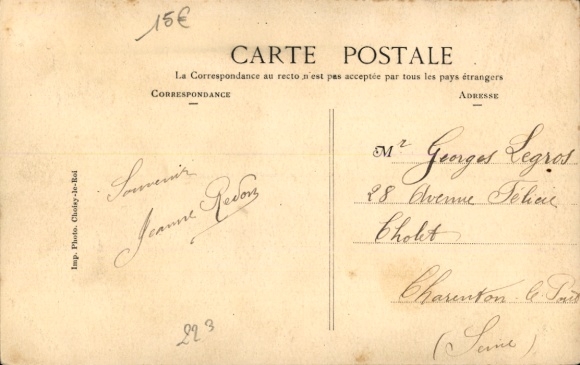 15€
CARTE POSTALE
La Correspondance au recto n'est pas acceptée par tous les pays étrangers
CORRESPONDANCE
ADRESSE
Souvenir
Jeanne Redon
Mr Georges Legros
28 Avenue Félicie
Cholet
Charenton le Pont
(Seine)
Imp. Photo. Choisy-le-Roi
223